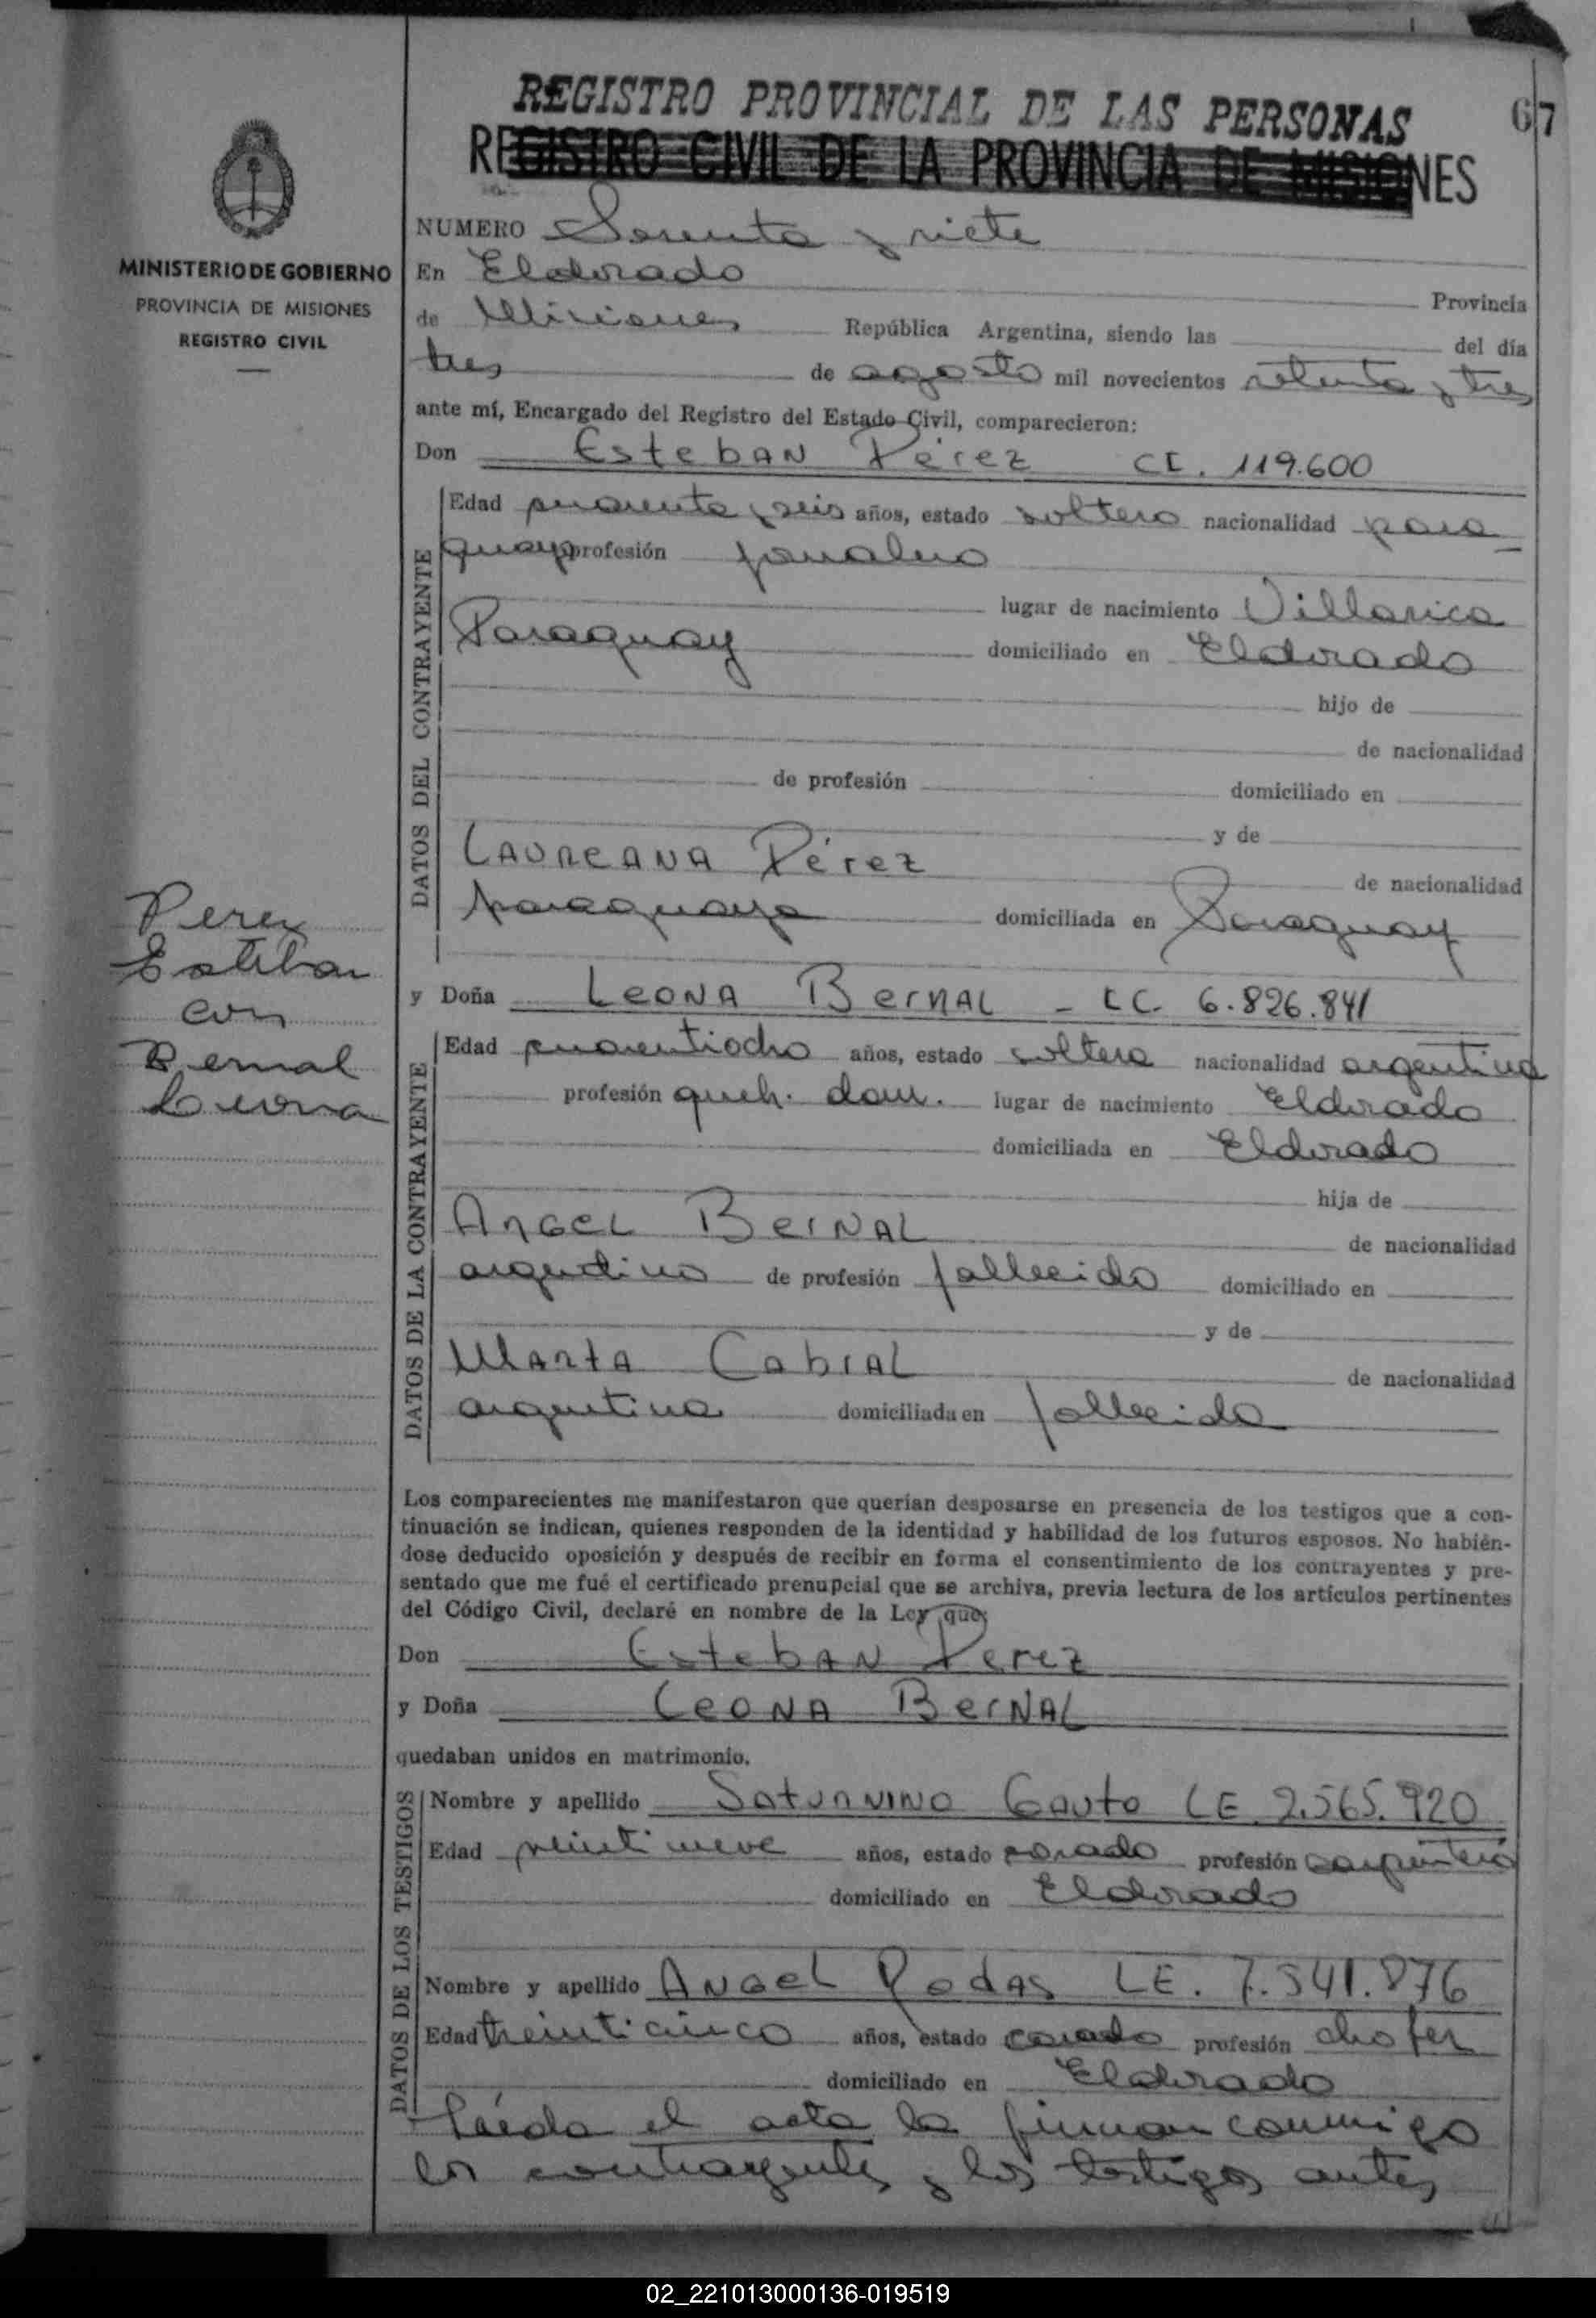 REGISTRO PROVINCIAL DE LAS PERSONAS
67
REGISTRO CIVIL DE LA PROVINCIA DE MISIONES
MINISTERIO DE GOBIERNO
PROVINCIA DE MISIONES
REGISTRO CIVIL
NUMERO Sesenta y siete
En Eldorado Provincia
de Misiones República Argentina, siendo las del día
tres de agosto mil novecientos setenta y tres
ante mí, Encargado del Registro del Estado Civil, comparecieron:
Don Esteban Pérez CI. 119.600
DATOS DEL CONTRAYENTE
Edad cuarenta y seis años, estado soltero nacionalidad para-
guaya profesión jornalero
lugar de nacimiento Villarica
Paraguay domiciliado en Eldorado
hijo de
de nacionalidad
de profesión domiciliado en
y de
Laureana Pérez de nacionalidad
paraguaya domiciliada en Paraguay
Perez
Esteban
con
Bernal
Leona
y Doña Leona Bernal - LC. 6.826.841
DATOS DE LA CONTRAYENTE
Edad cuarentiocho años, estado soltera nacionalidad argentina
profesión queh. dom. lugar de nacimiento Eldorado
domiciliada en Eldorado
hija de
Angel Bernal de nacionalidad
argentino de profesión fallecido domiciliado en
y de
Marta Cabral de nacionalidad
argentina domiciliada en fallecida
Los comparecientes me manifestaron que querían desposarse en presencia de los testigos que a con-
tinuación se indican, quienes responden de la identidad y habilidad de los futuros esposos. No habién-
dose deducido oposición y después de recibir en forma el consentimiento de los contrayentes y pre-
sentado que me fué el certificado prenupcial que se archiva, previa lectura de los artículos pertinentes
del Código Civil, declaré en nombre de la Ley que:
Don Esteban Perez
y Doña Leona Bernal
quedaban unidos en matrimonio.
DATOS DE LOS TESTIGOS
Nombre y apellido Saturnino Gauto LE 2.565.920
Edad veintinueve años, estado casado profesión carpintero
domiciliado en Eldorado
Nombre y apellido Angel Rodas LE. 7.541.876
Edad treinticinco años, estado casado profesión chofer
domiciliado en Eldorado
Leída el acta la firman conmigo
los contrayentes y los testigos antes
02_221013000136-019519